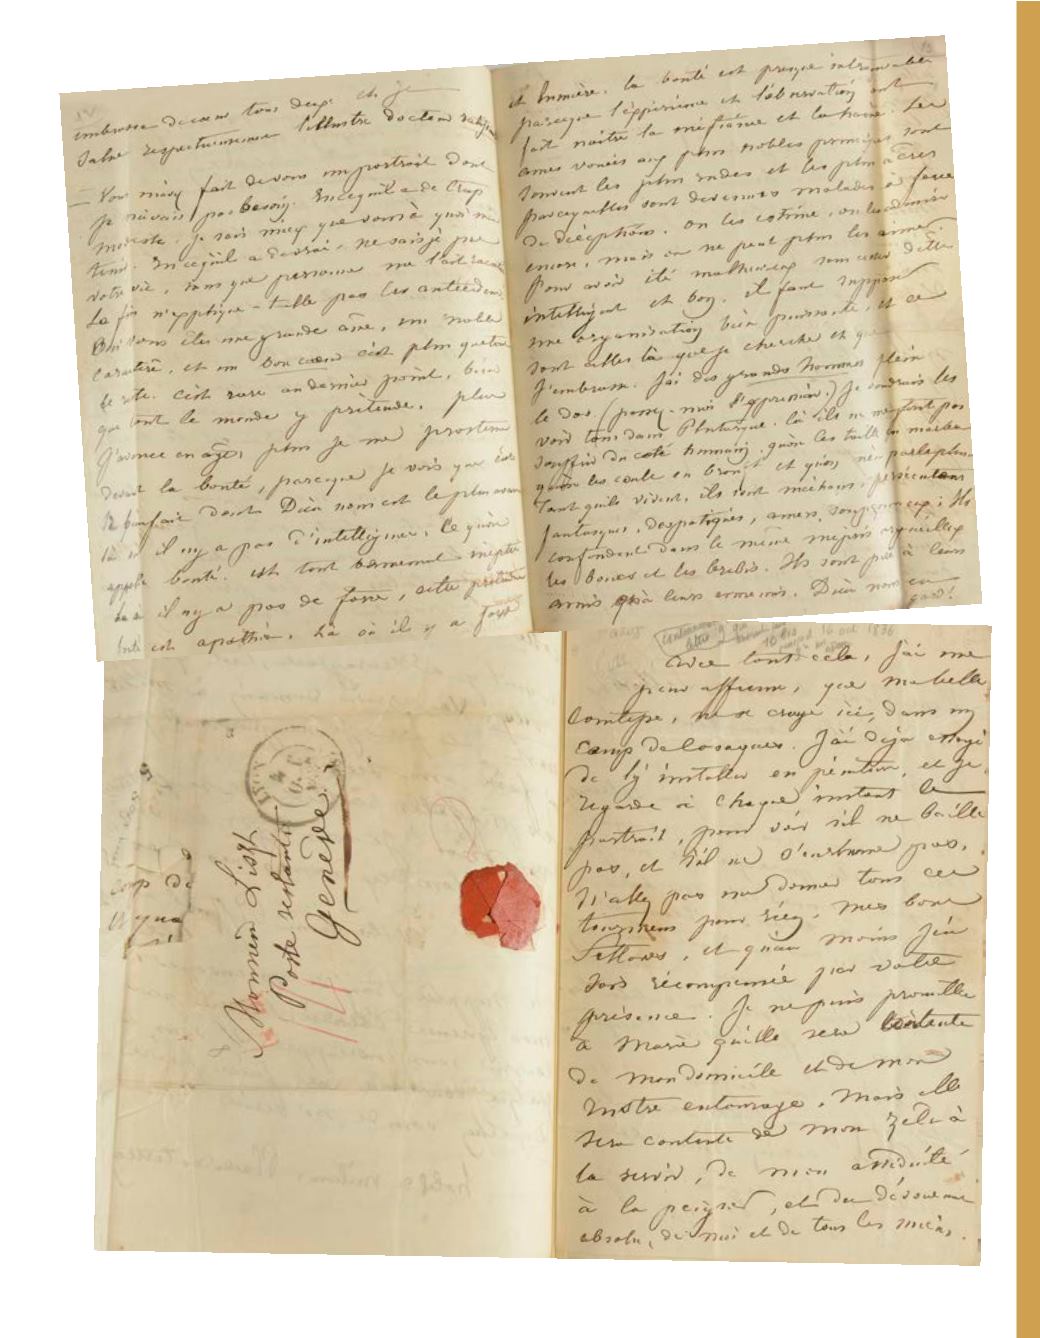 embrasse de cœur tous deux et je
salue respectueusement l'illustre docteur
— Vous m'avez fait de vous un portrait dont
je n'avais pas besoin. En ce qu'il a de trop
modeste, je sais mieux que vous à quoi m'en
tenir. En ce qu'il a de vrai, ne sais-je pas
votre vie, sans que personne me l'ait racontée
La fin n'explique-t-elle pas les antécédens
Oui vous êtes une grande âme, un noble
caractère, et un bon cœur c'est plus que tout
le reste. C'est rare au dernier point, bien
que tout le monde y prétende. plus
j'avance en âge, plus je me prosterne
devant la bonté, parceque je vois que c'est
le bienfait dont Dieu nous est le plus avare
là où il n'y a pas d'intelligence, ce qu'on
appelle bonté est tout bonnement ineptie
là où il n'y a pas de force, cette prétendue
bonté est apathie. Là où il y a force
et lumière, la bonté est presque introuvable
parceque l'expérience et l'observation ont
fait naître la méfiance et la haine. Les
ames vouées aux plus nobles principes sont
souvent les plus rudes et les plus âcres
parcequ'elles sont devenues malades à force
de déceptions. on les estime, on les admire
encore, mais on ne peut plus les aimer.
Pour avoir été malheureux sans cesser d'être
intelligent et bon, il faut supposer
une organisation bien puissante, et ce
sont celles là que je cherche et que
j'embrasse. J'ai des grands hommes plein
le dos (passez-moi l'expression.) je voudrais les
voir tous dans Plutarque. là ils ne me font pas
souffrir du côté humain. qu'on les taille en marbre
qu'on les coule en bronze et qu'on n'en parle plus.
Tant qu'ils vivent, ils sont méchans, persécutans
fantasques, despotiques, amers, soupçonneux; Ils
confondent dans le même mépris orgueilleux
les boucs et les brebis. Ils sont pires à leurs
amis qu'à leurs ennemis. Dieu nous en
gard!
16 oct 1836
avec tout cela, j'ai une
peur affreuse, que ma belle
Comtesse, ne se croye ici, dans un
camp de Cosaques. J'ai déjà essayé
de l'y installer en peinture, et je
regarde à chaque instant le
portrait, pour voir s'il ne bâille
pas, et s'il ne s'enrhume pas.
N'allez pas me donner tous ces
tourmens pour rien, mes bons
Fellows, et qu'au moins j'en
sois récompensé par votre
présence. Je ne puis promettre
à Marie qu'elle sera contente
de mon domicile et de mon
rustre entourage, mais elle
sera contente de mon zèle à
la servir, de mon assiduité
à la peigner, et du dévouement
absolu, de moi et de tous les miens.
LYON
Monsieur Liszt
Poste restante
Genève